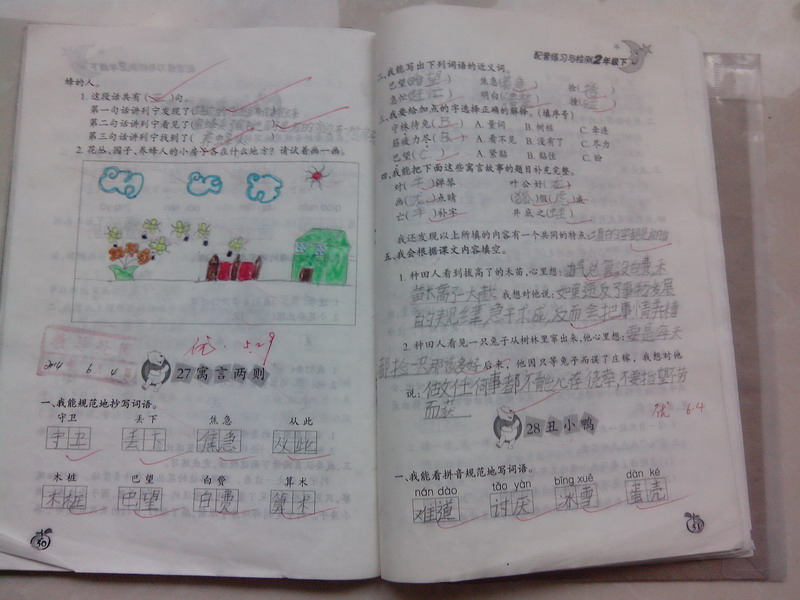 蜂的人。
1. 这段话共有( 三 )句。
第一句话讲列宁发现了(
第二句话讲列宁看见了(
第三句话讲列宁找到了(
2. 花丛、园子、养蜂人的小房子各在什么地方？请试着画一画。
优 5.29
2014 6.4
27 寓言两则
一、我能规范地抄写词语。
守卫 丢下 焦急 从此
守卫 丢下 焦急 从此
木桩 巴望 白费 算术
木桩 巴望 白费 算术
50
配套练习与检测2年级下
二、我能写出下列词语的近义词。
巴望( 盼望 ) 焦急( ) 捡( )
急忙( 连忙 ) 明白( ) 撞( )
三、我要给加点的字选择正确的解释。(填序号)
守株待兔( B ) A. 量词 B. 树桩 C. 牵连
筋疲力尽( ) A. 看不见 B. 没有了 C. 尽力
巴望( C ) A. 紧贴 B. 粘住 C. 盼
四、我能把下面这些寓言故事的题目补充完整。
对( 牛 )弹琴 叶公好( 龙 )
画( 龙 )点睛 ( 狐 )假( 虎 )威
亡( 羊 )补牢 井底之( 蛙 )
我还发现以上所填的内容有一个共同的特点:
五、我会根据课文内容填空。
1. 种田人看到拔高了的禾苗,心里想: 力气总算没白费,禾
苗长高了一大截。我想对他说: 如果违反了事物发展
的规律,急于求成,反而会把事情弄糟
2. 种田人看见一只兔子从树林里窜出来,他心里想: 要是每天
都捡一只那该多好 后来，他因只等兔子而误了庄稼，我想对他
说: 做任何事都不能心存侥幸,不要指望不劳
而获
优 6.4
28 丑小鸭
一、我能看拼音规范地写词语。
nán dào tǎo yàn bīng xuě dàn ké
难道 讨厌 冰雪 蛋壳
51